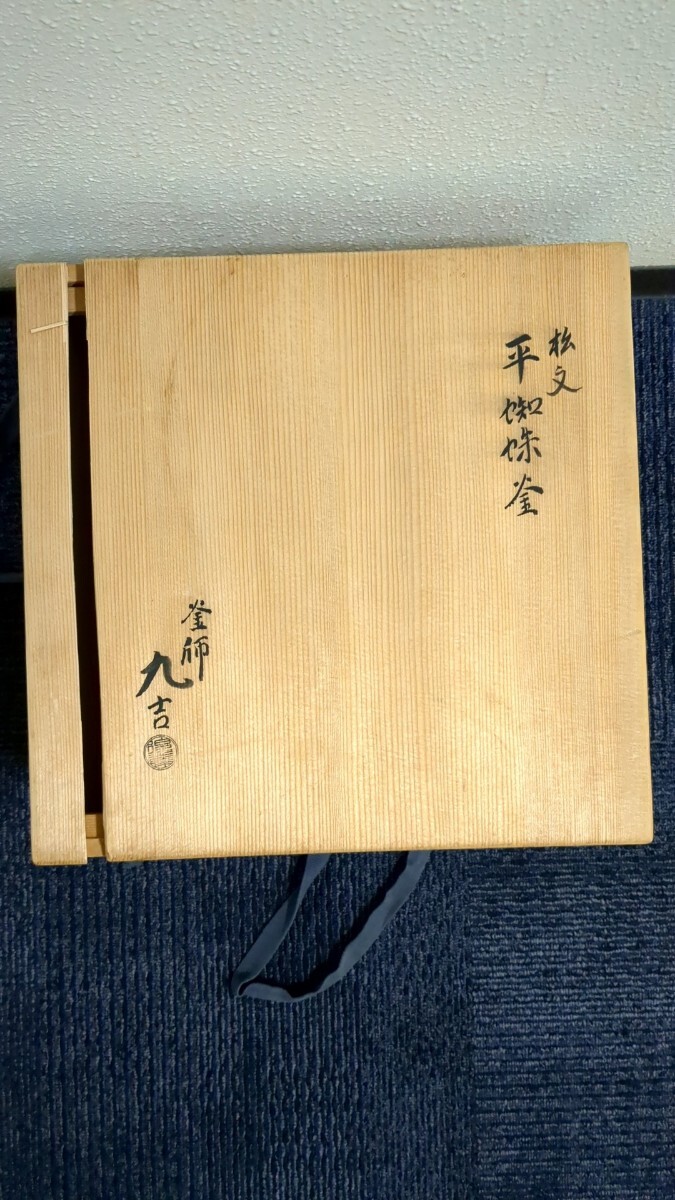 松文
平蜘蛛釜
釜師
九吉